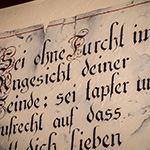 Sei ohne Furcht im
Angesicht deiner
Feinde; sei tapfer u
aufrecht auf dass
dich lieben